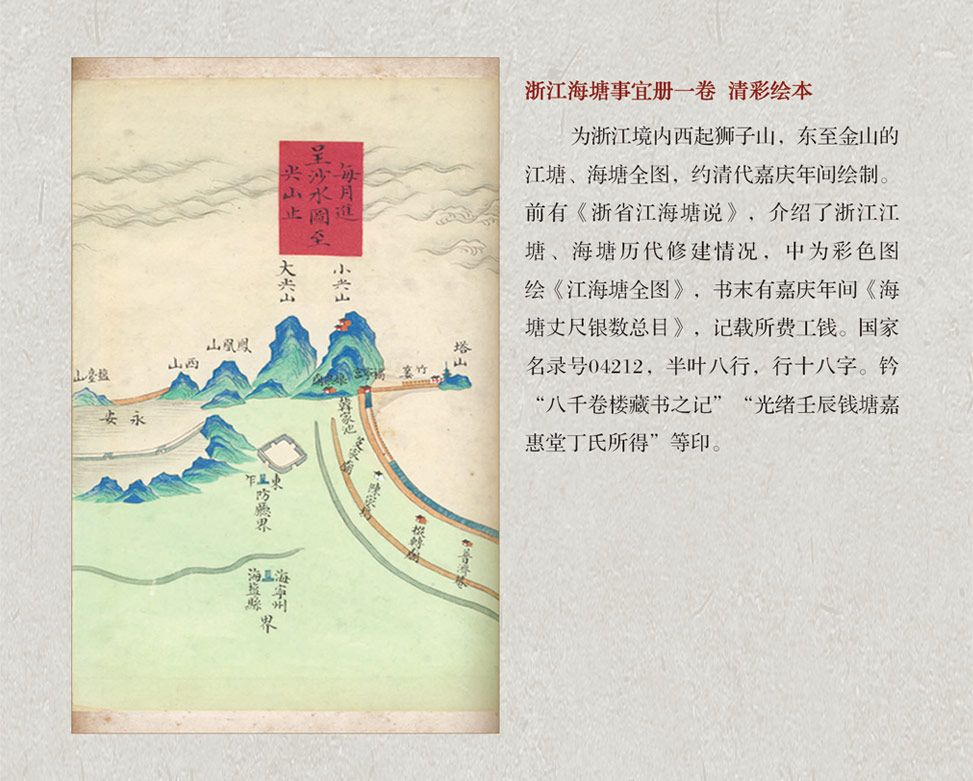 浙江海塘事宜册一卷 清彩绘本
为浙江境内西起狮子山，东至金山的
江塘、海塘全图，约清代嘉庆年间绘制。
前有《浙省江海塘说》，介绍了浙江江
塘、海塘历代修建情况，中为彩色图
绘《江海塘全图》，书末有嘉庆年间《海
塘丈尺银数总目》，记载所费工钱。国家
名录号04212，半叶八行，行十八字。钤
“八千卷楼藏书之记”“光绪壬辰钱塘嘉
惠堂丁氏所得”等印。
每月進
呈沙水圖至
尖山止
小尖山
大尖山
鳳凰山
西山
塔山
竹簍
永安
韓家池
東
防廳界
海寧州
海鹽縣
界